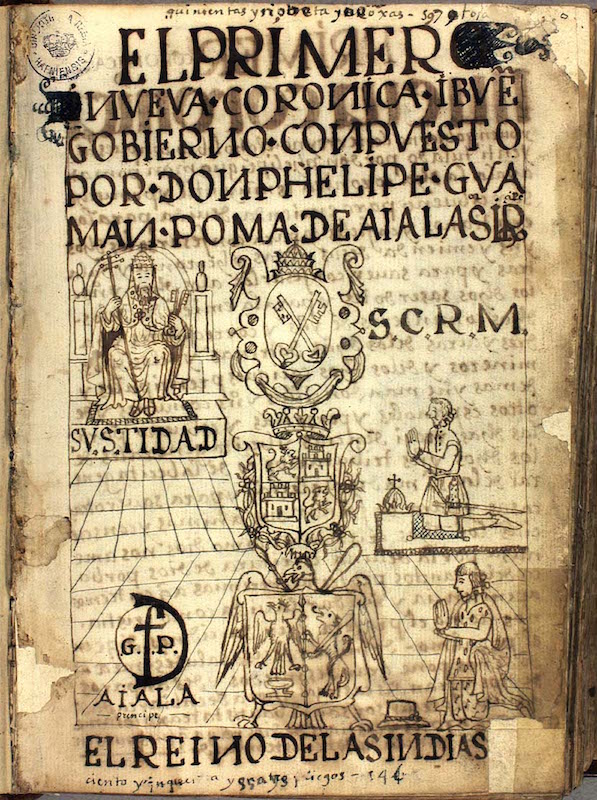 quinientas y nobenta y ojas - 597
EL PRIMER
NVEVA·CORONICA·IBVĒ
GOBIERNO·CONPVESTO
POR·DON PHELIPE·GVA
MAN·POMA·DE AIALA SIR
S.C.R.M.
SV.S.TIDAD
G. P.
AIALA
principe
EL REINO DE LAS INDIAS
ciento y y pliegos - 146
HAFNIENSIS